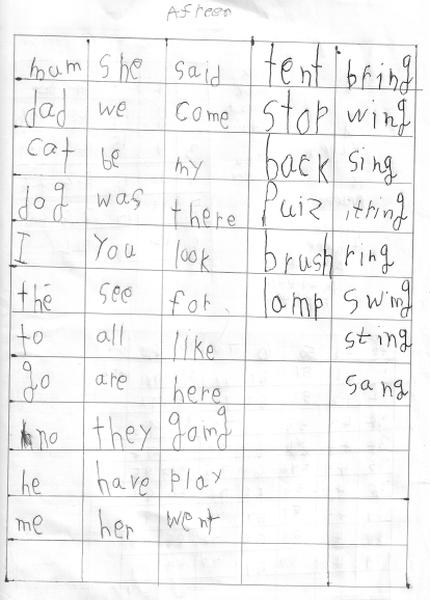 Afreen
mum she said tent bring
dad we come stop wing
cat be my back sing
dog was there Puiz itring
I You look brush ring
the see for. lamp swing
to all like sting
go are here sang
no they gamg
he have play
me her went